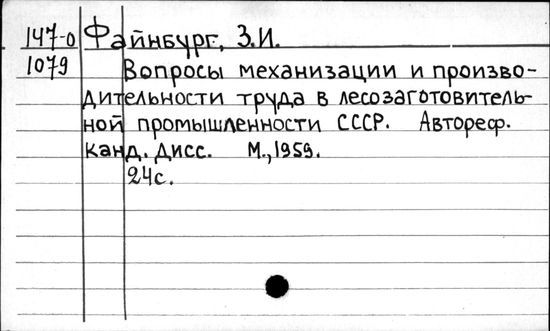 147-0 Файнбург, З.И.
1079 Вопросы механизации и произво-
дительности труда в лесозаготовитель-
ной промышленности СССР. Автореф.
канд. дисс. М., 1959.
24с.